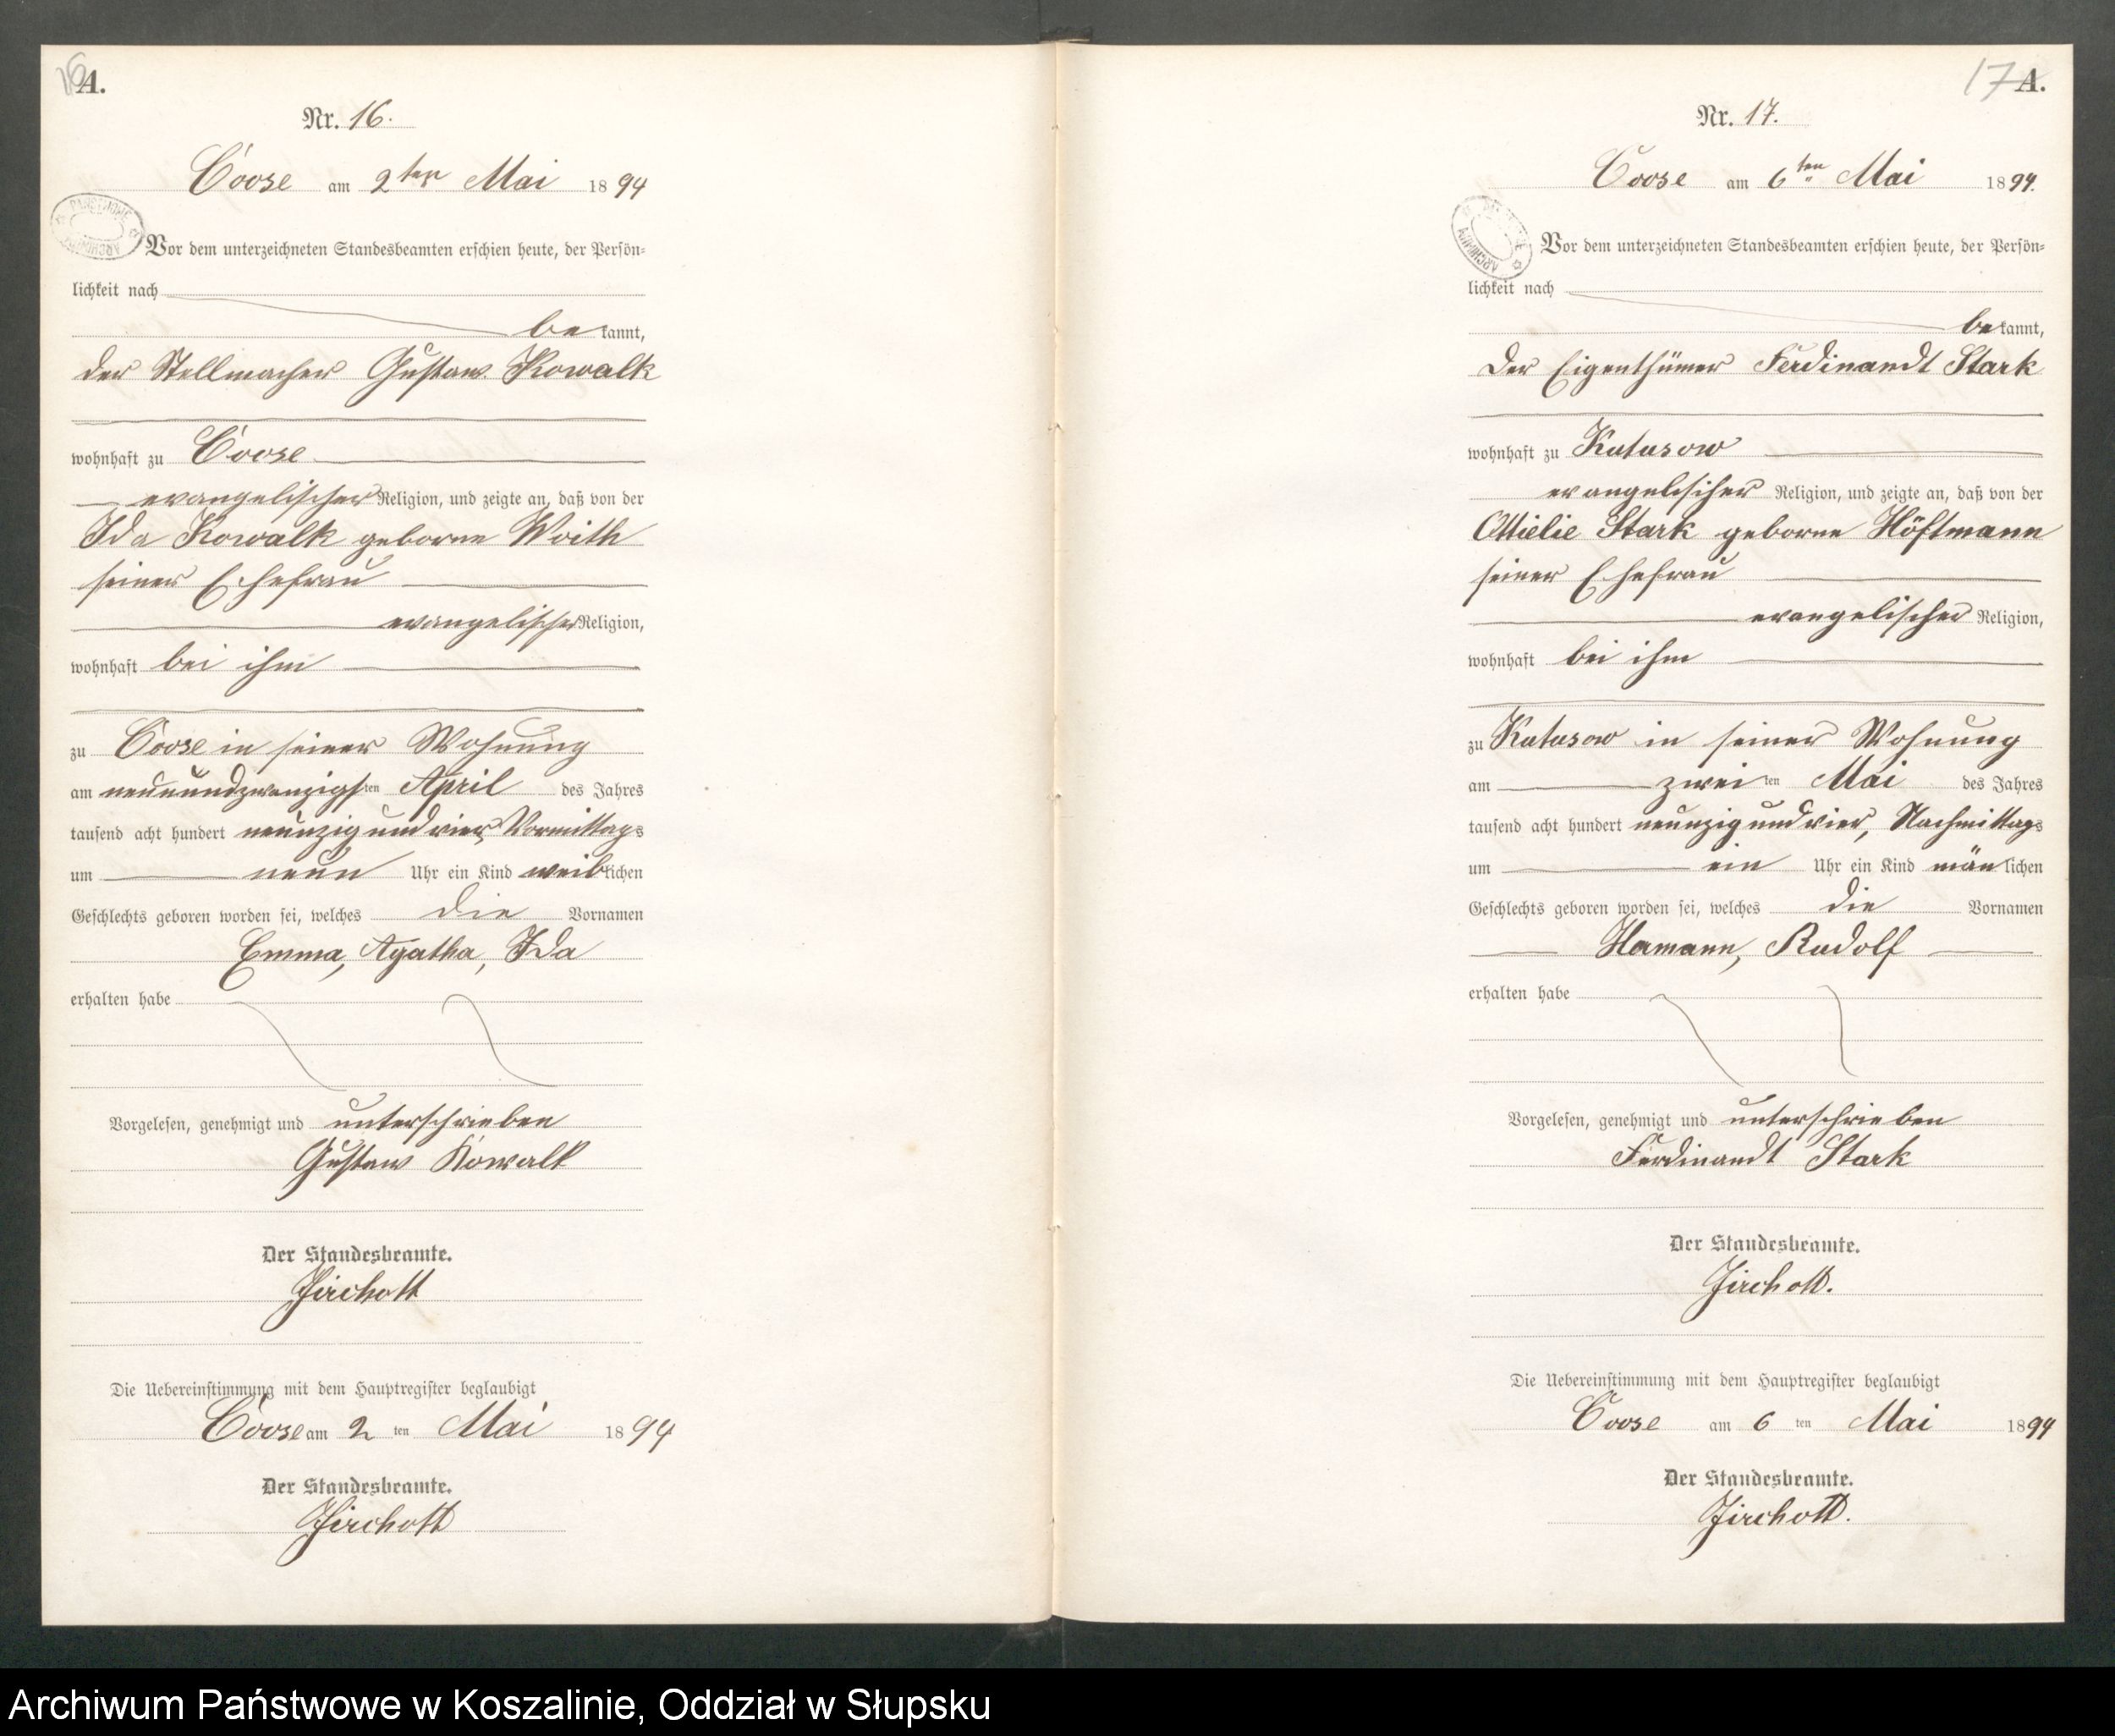 16 A.
Nr. 16.
Coose am 2ten Mai 1894
PAŃSTWOWE ARCHIWUM
Vor dem unterzeichneten Standesbeamten erschien heute, der Persön-
lichkeit nach
bekannt,
der Stellmacher Gustaw Kowalk
wohnhaft zu Coose
evangelischer Religion, und zeigte an, daß von der
Ida Kowalk geborne Woith
seiner Ehefrau
evangelischer Religion,
wohnhaft bei ihm
zu Coose in seiner Wohnung
am neunundzwanzigsten April des Jahres
tausend acht hundert neunzig und vier, Vormittags
um neun Uhr ein Kind weiblichen
Geschlechts geboren worden sei, welches die Vornamen
Emma, Agatha, Ida
erhalten habe
Vorgelesen, genehmigt und unterschrieben
Gustaw Kowalk
Der Standesbeamte.
Jirchott
Die Uebereinstimmung mit dem Hauptregister beglaubigt
Coose am 2ten Mai 1894
Der Standesbeamte.
Jirchott
17 A.
Nr. 17.
Coose am 6ten Mai 1894.
ARCHIWUM
Vor dem unterzeichneten Standesbeamten erschien heute, der Persön-
lichkeit nach
bekannt,
Der Eigenthümer Ferdinandt Stark
wohnhaft zu Kutusow
evangelischer Religion, und zeigte an, daß von der
Stark geborne Höftmann
seiner Ehefrau
evangelischer Religion,
wohnhaft bei ihm
zu Kutusow in seiner Wohnung
am zweiten Mai des Jahres
tausend acht hundert neunzig und vier, Nachmittags
um ein Uhr ein Kind mänlichen
Geschlechts geboren worden sei, welches die Vornamen
Hermann, Rudolf
erhalten habe
Vorgelesen, genehmigt und unterschrieben
Ferdinandt Stark
Der Standesbeamte.
Jirchott.
Die Uebereinstimmung mit dem Hauptregister beglaubigt
Coose am 6ten Mai 1894
Der Standesbeamte.
Jirchott.
Archiwum Państwowe w Koszalinie, Oddział w Słupsku